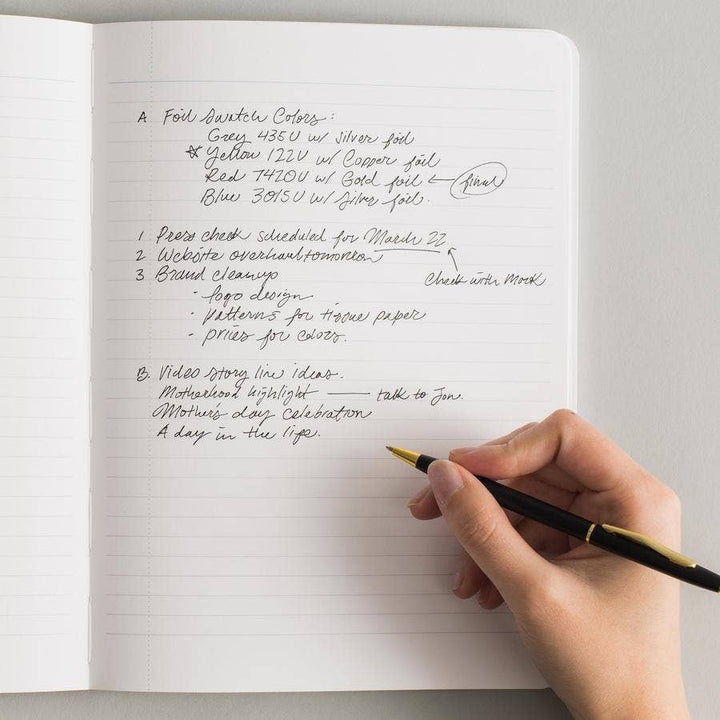 A Foil Swatch Colors:
Grey 435U w/ silver foil
☆ Yellow 122U w/ Copper foil
Red 7420U w/ Gold foil ← final
Blue 3015U w/ Silver foil.
1 Press check scheduled for March 22
2 Website overhaul tomorrow
check with Mook
3 Brand cleanup
- logo design
- patterns for tissue paper
- prices for colors.
B. Video story line ideas.
Motherhood highlight —— talk to Jon.
Mother's day celebration
A day in the life.